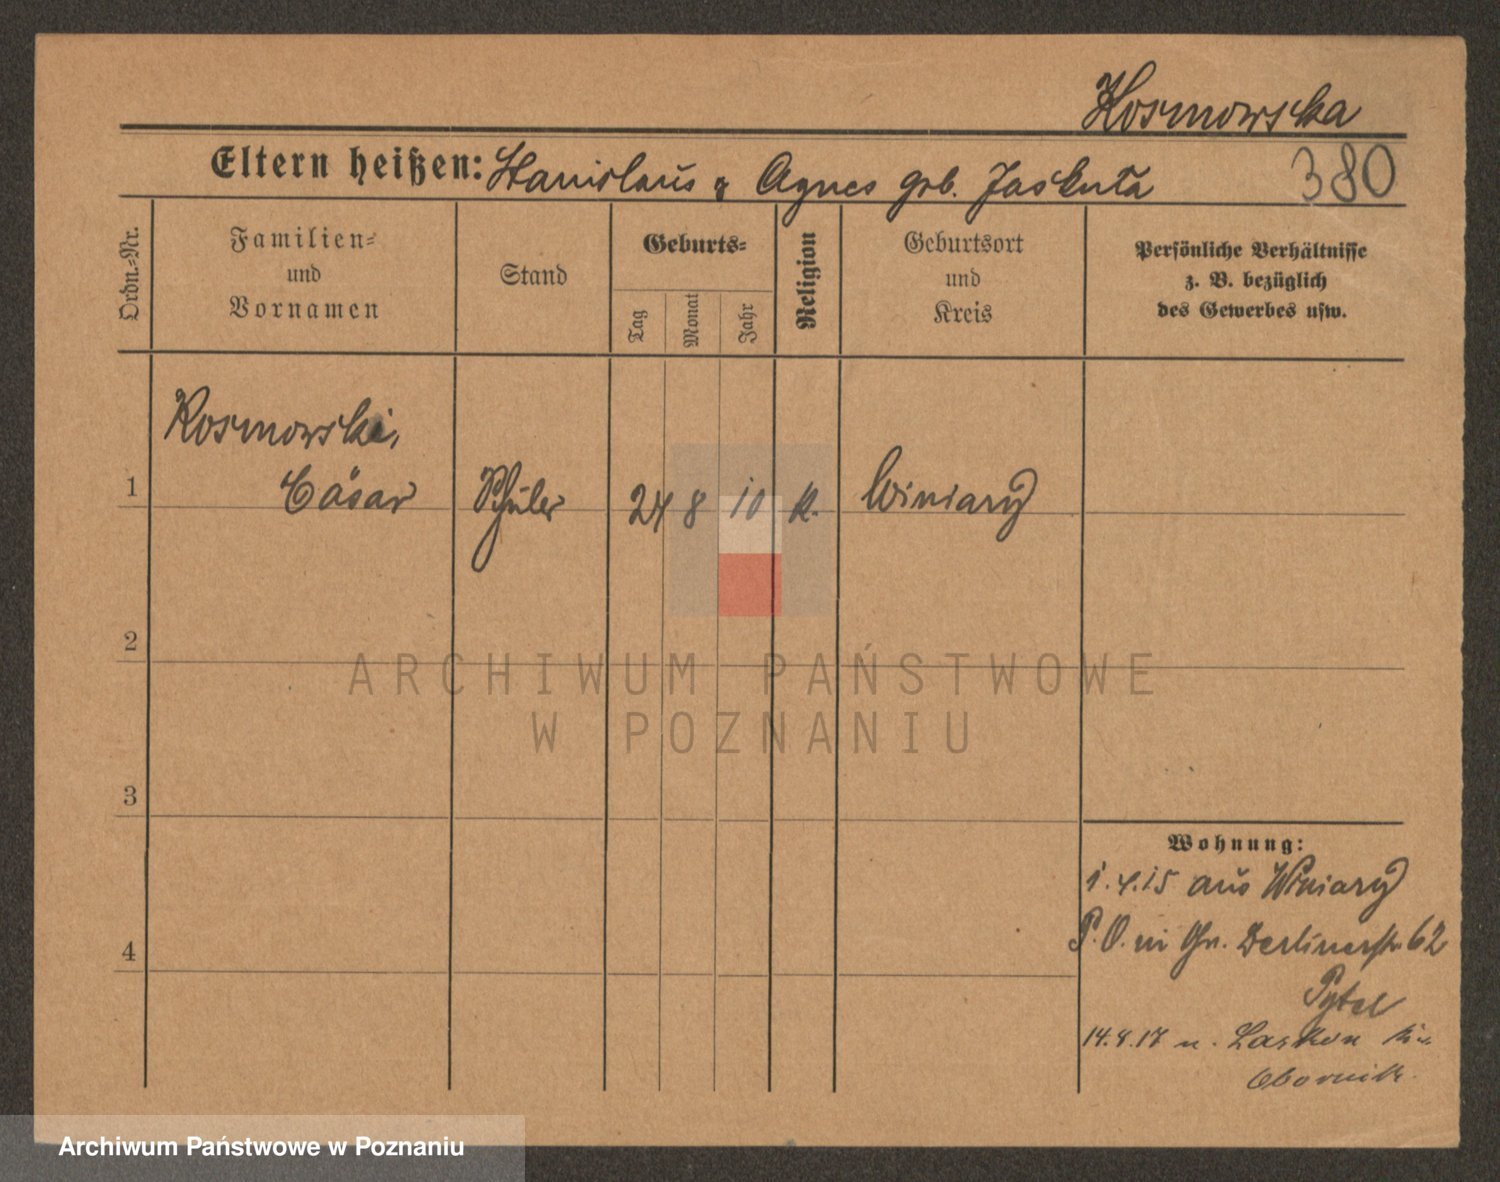 Kosmowska
Eltern heißen: Stanislaus & Agnes geb. Jaskuła
380
Ordn.-Nr.
Familien-
und
Vornamen
Stand
Geburts-
Tag
Monat
Jahr
Religion
Geburtsort
und
Kreis
Persönliche Verhältnisse
z. B. bezüglich
des Gewerbes usw.
Kosmowski,
1 Cäsar Schüler 24 8 10 k. Winiary
2
3
4
Wohnung:
1.4.15 aus Winiary
P. O. in Gn. Berlinerstr. 62
Pytel
14.8.17 n. Laskon
Obornik
ARCHIWUM PAŃSTWOWE
W POZNANIU
Archiwum Państwowe w Poznaniu